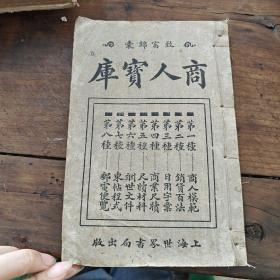 致富錦囊
商人寶庫
第一種 商人模範
第二種 銷貨百法
第三種 日用字彙
第四種 商業尺牘
第五種 尺牘材料
第六種 酬世文件
第七種 柬帖程式
第八種 郵電便覽
上海世界書局出版